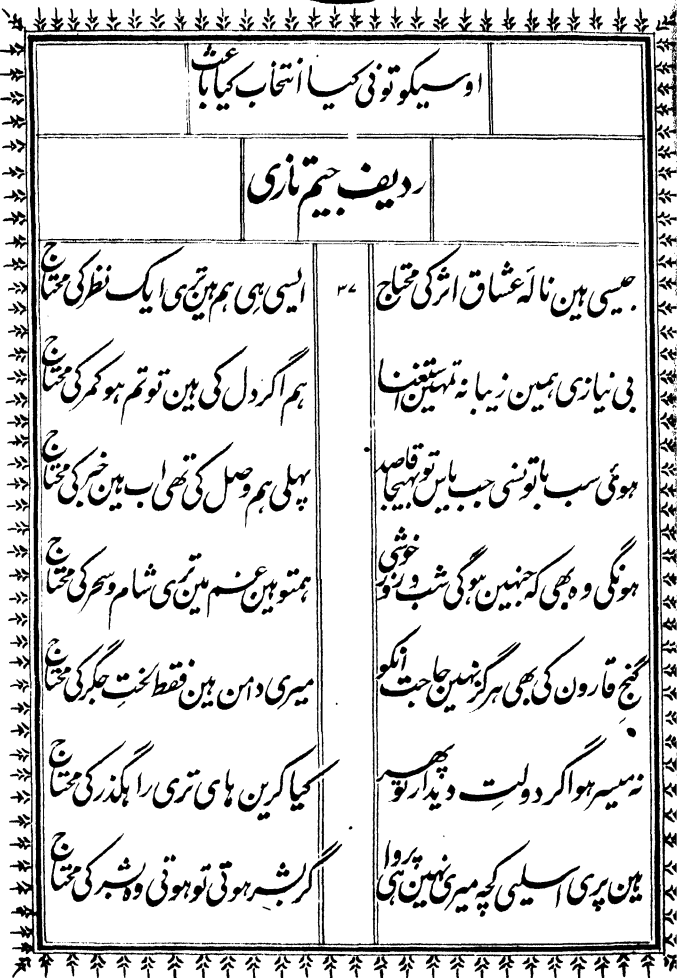 اوسیکو تونی کیا انتخاب کیا باعث
ردیف جیم تازی
جیسی ہین نالۂ عشاق اثر کی محتاج ۳۷ ایسی ہی ہم ہین تری ایک نظر کی محتاج
بی نیازی ہمین زیبا نہ تمہین استغنا ہم اگر دل کی ہین تو تم ہو کمر کی محتاج
ہوئی سب باتونسی جب یاس تو بہیجا قاصد پہلی ہم وصل کی تھی اب ہین خبر کی محتاج
ہونگی وہ بھی کہ جنہین ہوگی شب و روز خوشی ہمتو ہین غم مین تری شام و سحر کی محتاج
گنجِ قارون کی بھی ہرگز نہین حاجت انکو میری دامن ہین فقط لختِ جگر کی محتاج
نہ میسر ہو اگر دولتِ دیدار تو پھر کیا کرین ہای تری راہگذر کی محتاج
ہین پری اسلیی کچھ میری نہین ہی پروا گر بشر ہوتی تو ہوتی وہ بشر کی محتاج